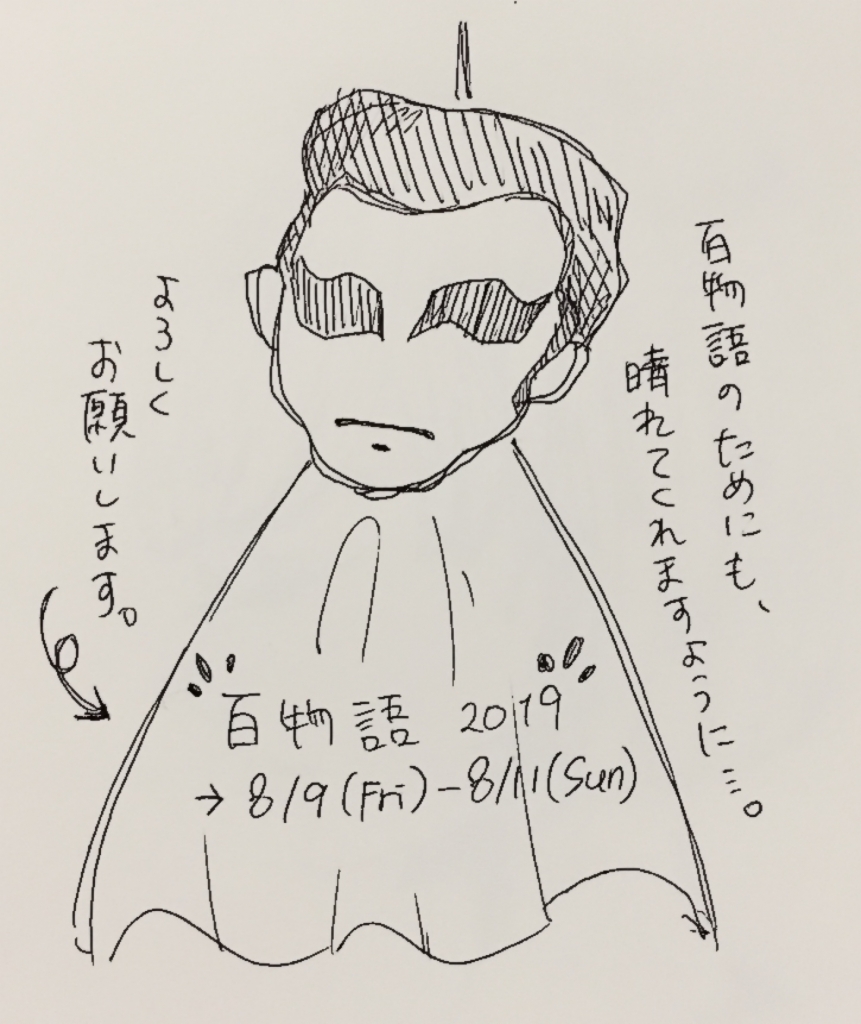 百物語のためにも、
晴れてくれますように…。
よろしく
お願いします。
百物語 2019
→ 8/9(Fri)-8/11(Sun)